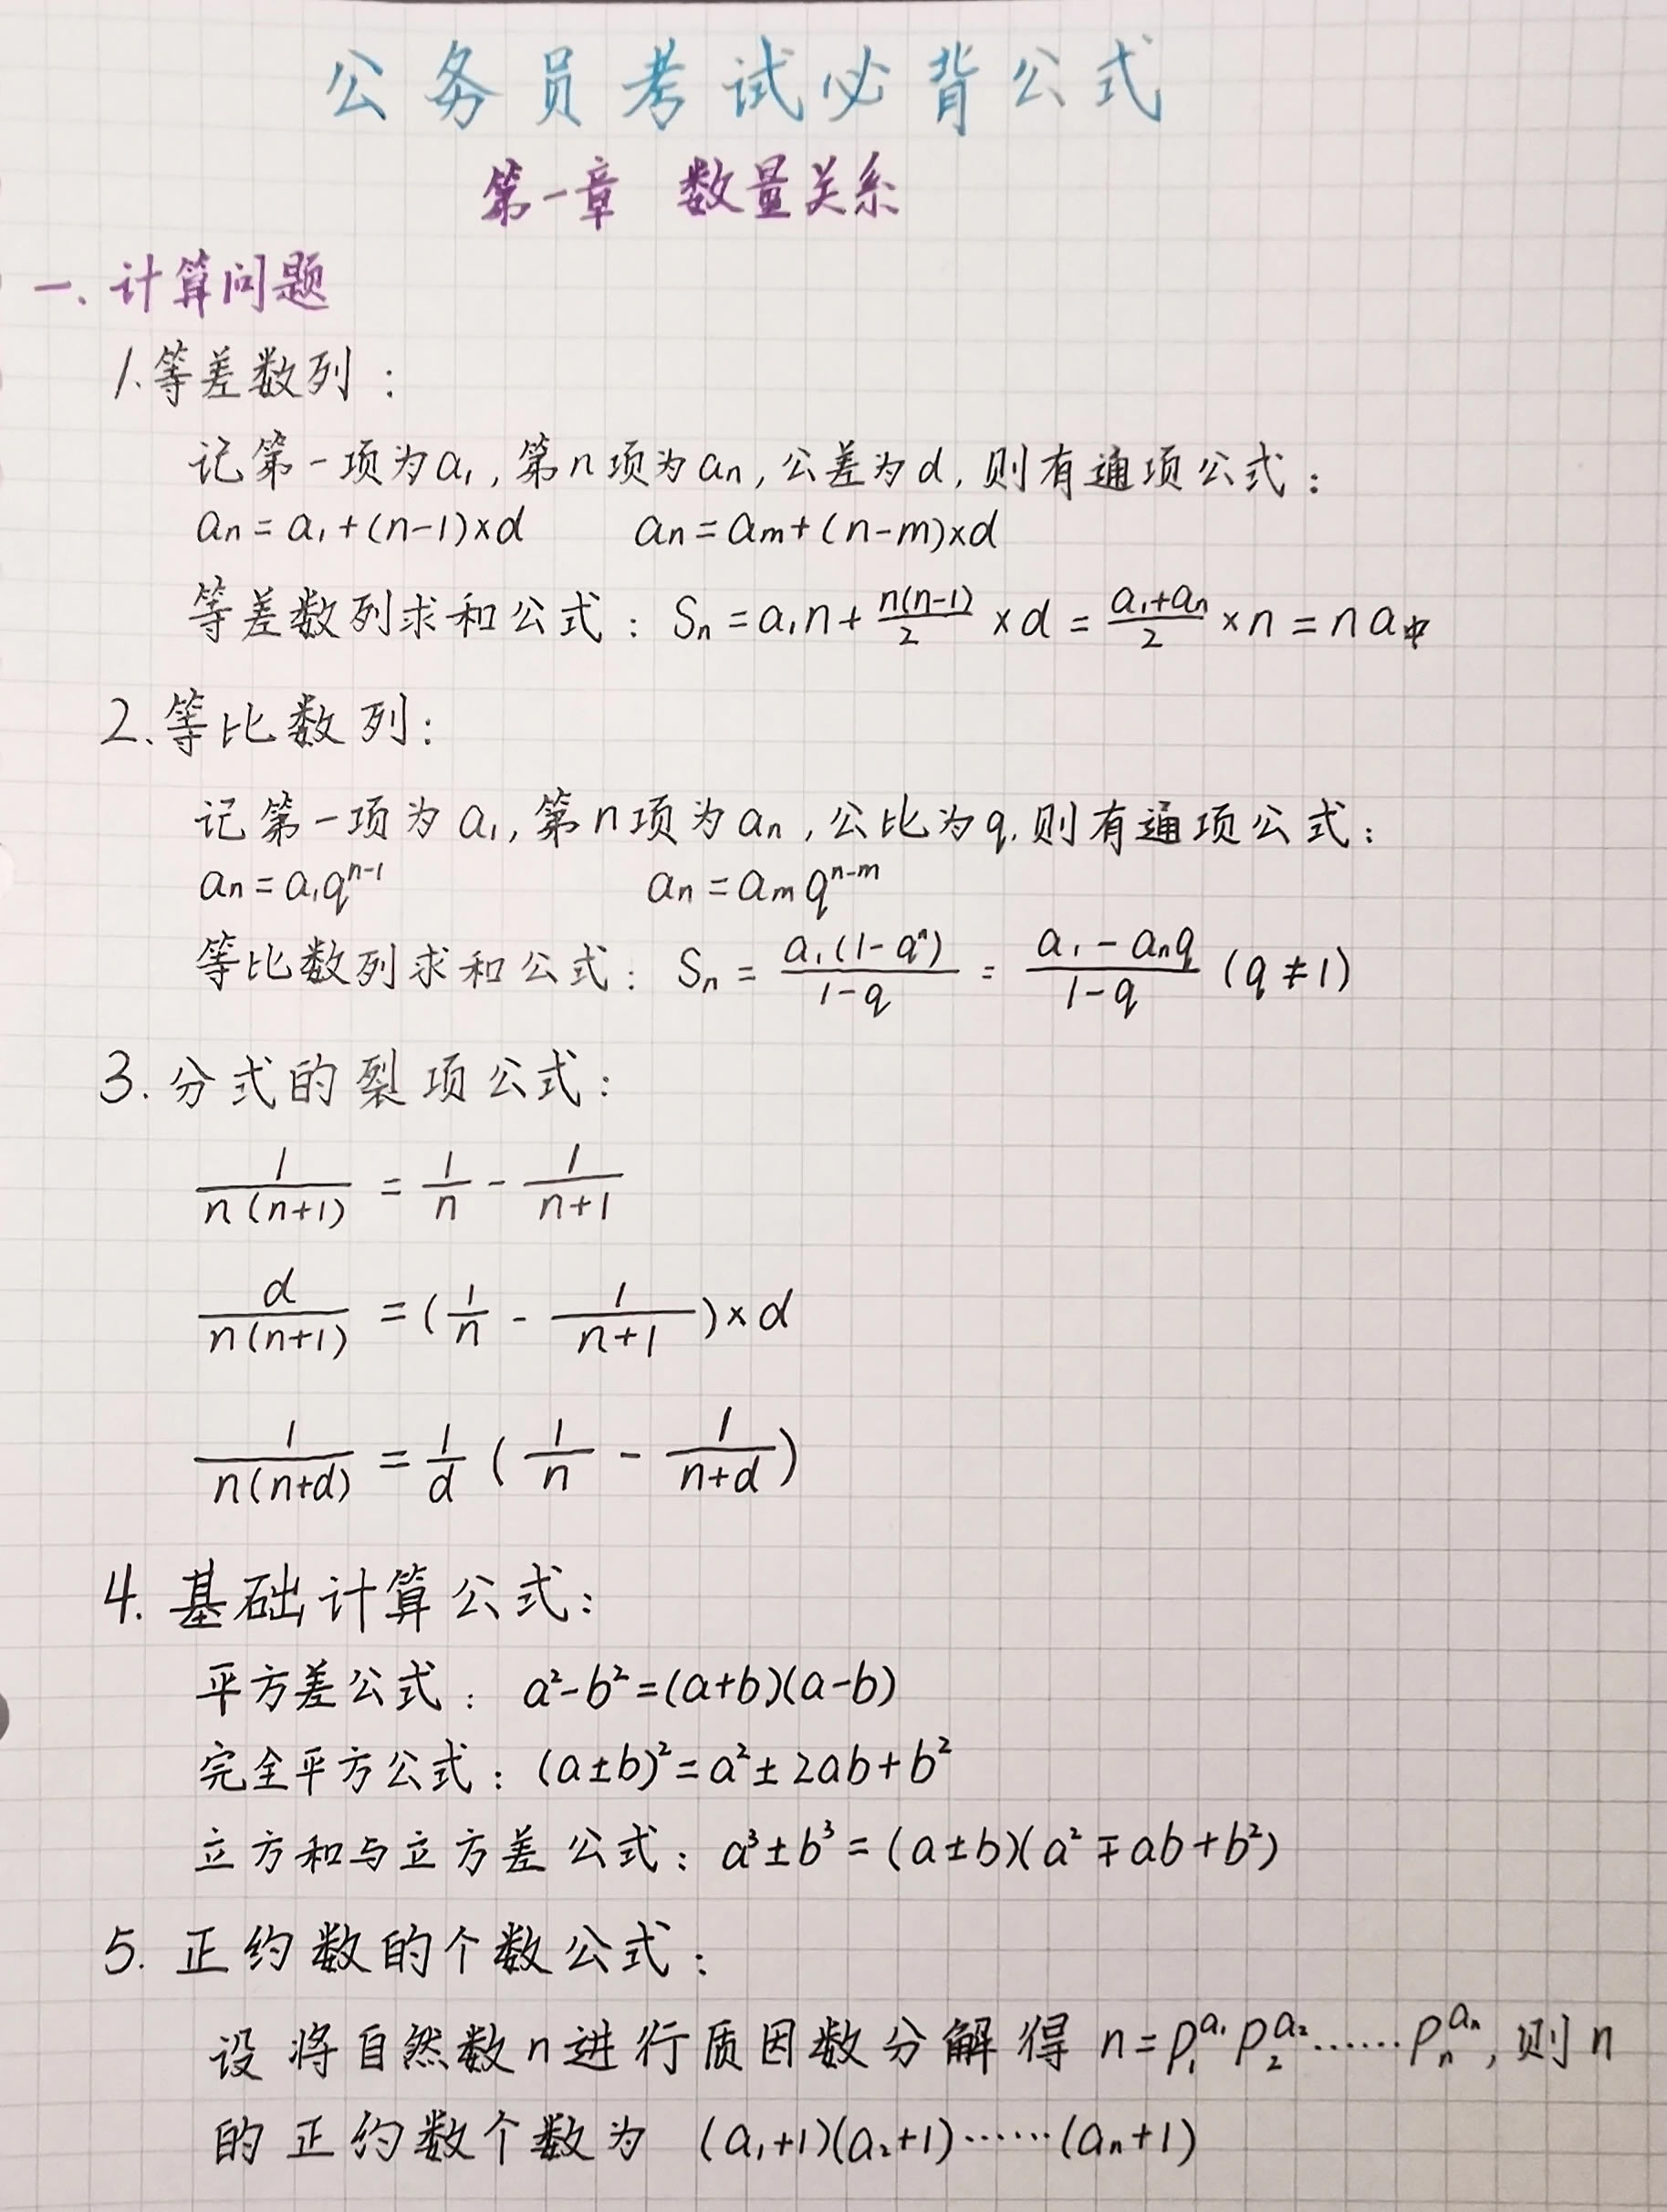 公务员考试必背公式
第一章 数量关系
一、计算问题
1.等差数列：
记第一项为a₁,第n项为aₙ,公差为d,则有通项公式：
aₙ=a₁+(n-1)×d aₙ=aₘ+(n-m)×d
等差数列求和公式：Sₙ=a₁n+n(n-1)/2×d=(a₁+aₙ)/2×n=na中
2.等比数列：
记第一项为a₁,第n项为aₙ,公比为q,则有通项公式：
aₙ=a₁qⁿ⁻¹ aₙ=aₘqⁿ⁻ᵐ
等比数列求和公式：Sₙ=a₁(1-qⁿ)/(1-q)=(a₁-aₙq)/(1-q) (q≠1)
3.分式的裂项公式：
1/n(n+1)=1/n-1/(n+1)
d/n(n+1)=(1/n-1/(n+1))×d
1/n(n+d)=1/d(1/n-1/(n+d))
4.基础计算公式：
平方差公式：a²-b²=(a+b)(a-b)
完全平方公式：(a±b)²=a²±2ab+b²
立方和与立方差公式：a³±b³=(a±b)(a²∓ab+b²)
5.正约数的个数公式：
设将自然数n进行质因数分解得n=p₁^a₁ p₂^a₂……pₙ^aₙ,则n
的正约数个数为 (a₁+1)(a₂+1)……(aₙ+1)